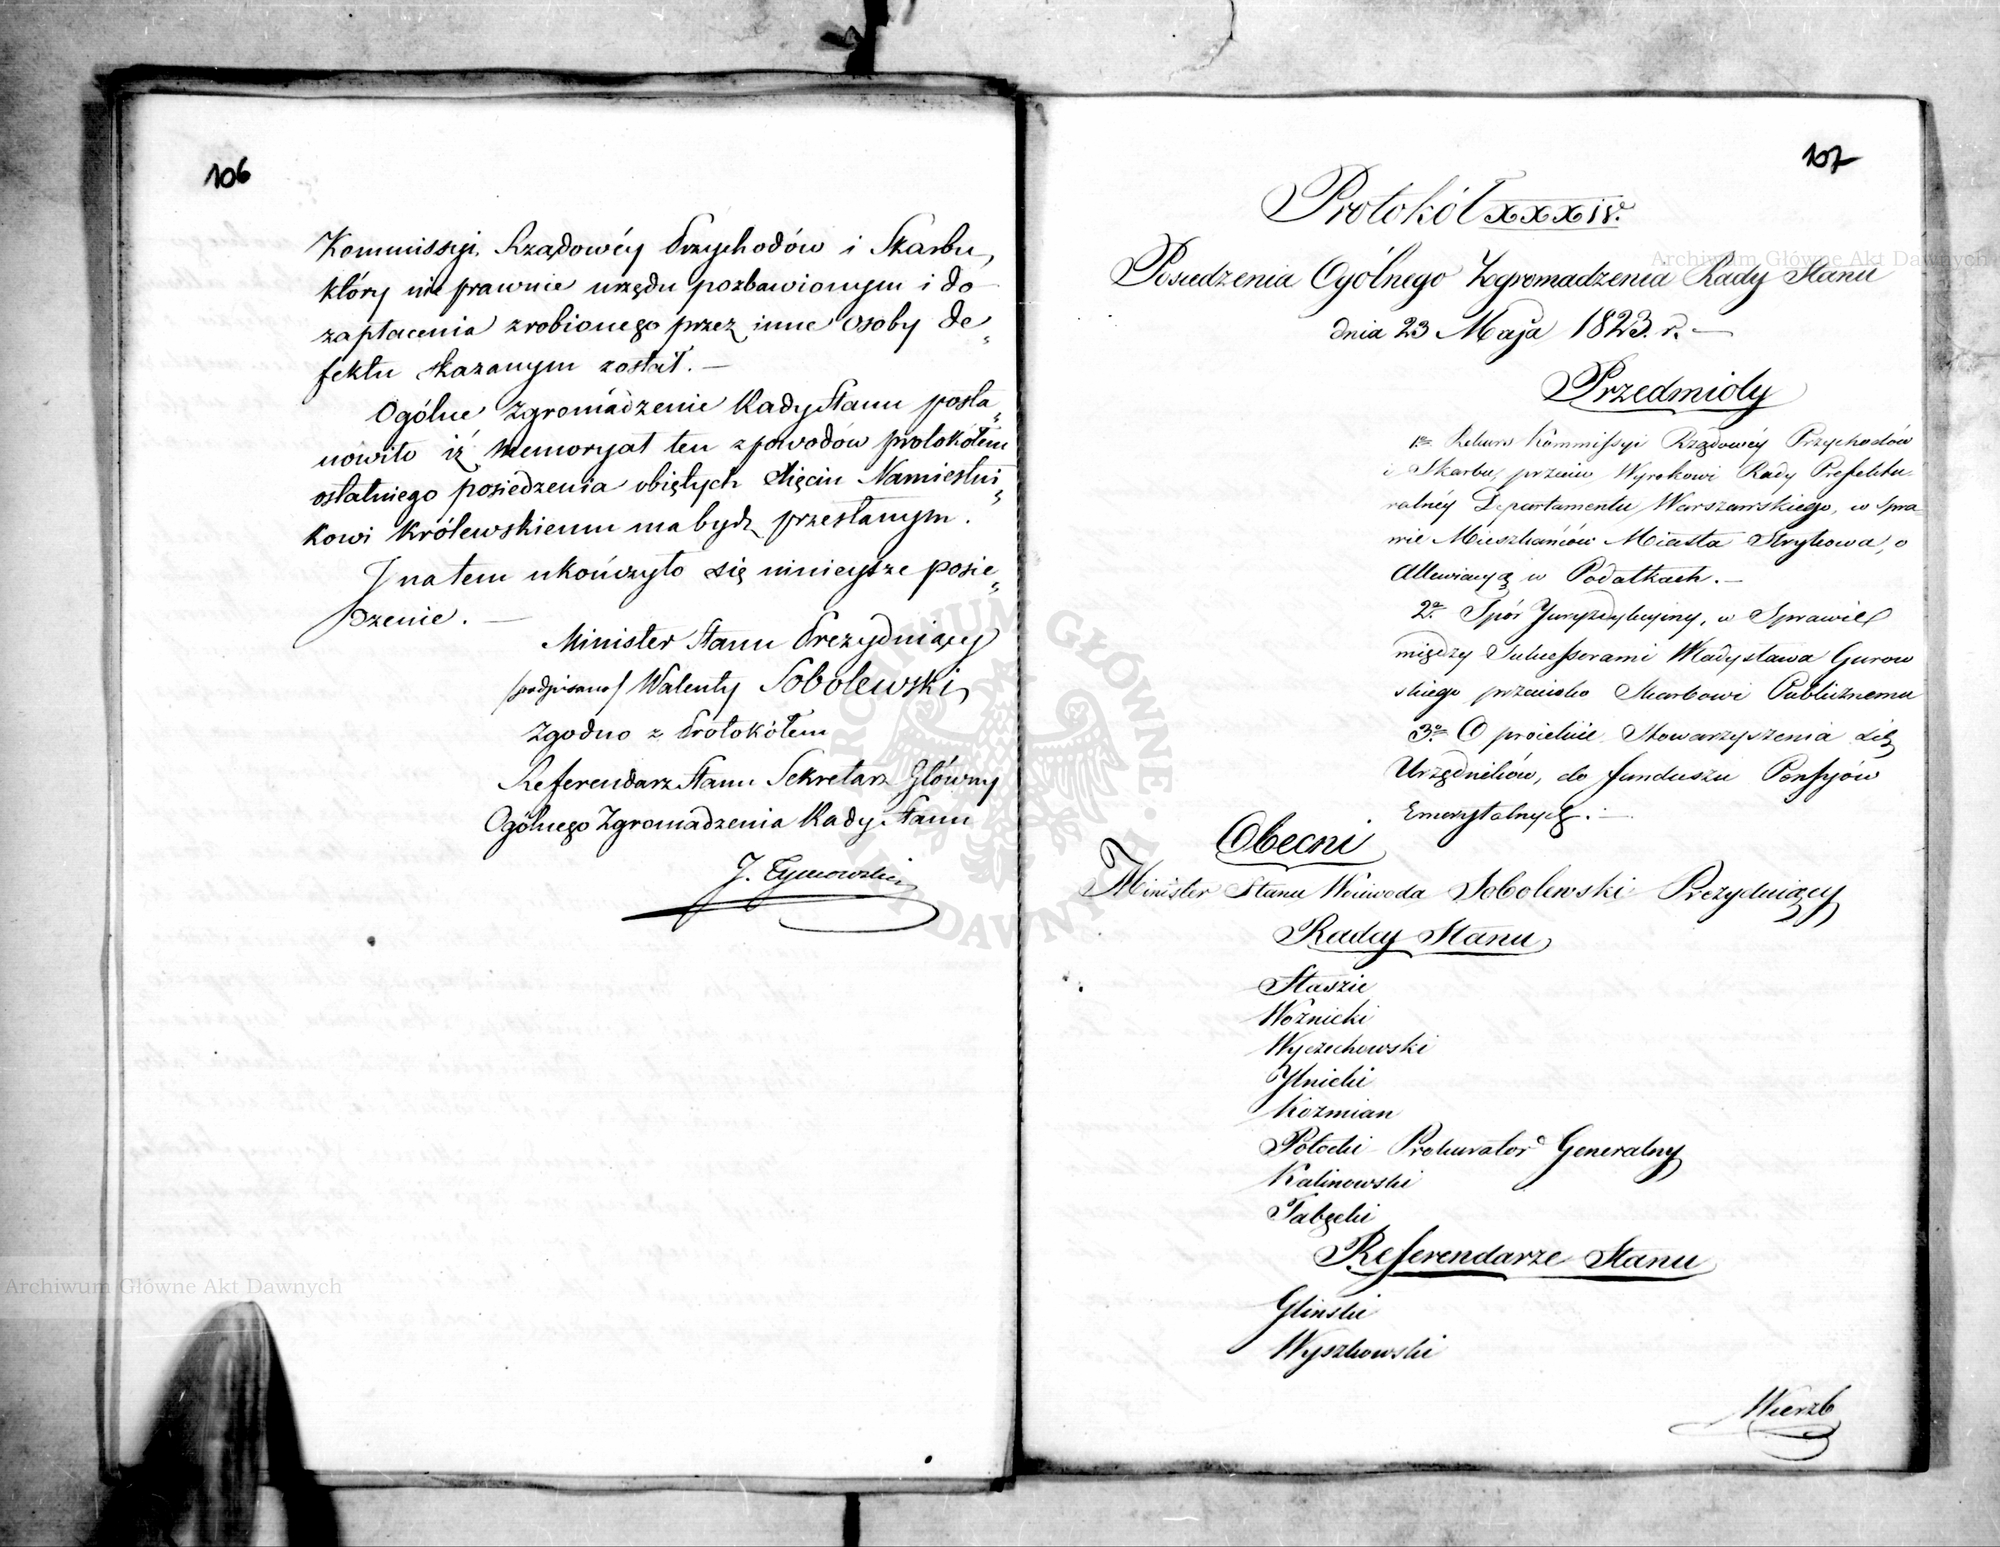 106
Kommissyi Rządowéy Przychodów i Skarbu,
który nie prawnie urzędu pozbawionym i do
zapłacenia zrobionego przez inne osoby de„
fektu skazanym został. —
Ogólne Zgromadzenie Rady Stanu posta„
nowiło iż memoryał ten z powodów protokółem
ostatniego posiedzenia obiętych Xięciu Namiestni„
kowi Królewskiemu ma bydź przesłanym.
I na tem ukończyło się ninieysze posie„
dzenie. —
Minister Stanu Prezyduiący
/podpisano/ Walenty Sobolewski
Zgodno z Protokółem
Referendarz Stanu Sekretarz Główny
Ogólnego Zgromadzenia Rady Stanu
J. Tymowski
107
Protokół XXXIV.
Posiedzenia Ogólnego Zgromadzenia Rady Stanu
dnia 23 Maja 1823. r. —
Przedmioty
1e Rekurs Kommissyi Rządowéy Przychodów
i Skarbu, przeciw Wyrokowi Rady Prefektu
ralnéy Departamentu Warszawskiego, w Spra
wie Mieszkańców Miasta Strykowa, o
Allewiacyą w Podatkach. —
2e Spór Juryzdykcyiny, w Sprawie
między Sukcessorami Władysława Gurow
skiego przeciwko Skarbowi Publicznemu
3e O proiekcie Stowarzyszenia się
Urzędników, do funduszu Pensyów
Emerytalnych. —
Obecni
Minister Stanu Woiewoda Sobolewski Prezyduiący
Radcy Stanu
Staszic
Woźnicki
Wyczechowski
Ilnicki
Koźmian
Potocki Prokurator Generalny
Kalinowski
Tabęcki
Referendarze Stanu
Gliński
Wyszkowski
Wierzb
Archiwum Główne Akt Dawnych
Archiwum Główne Akt Dawnych
ARCHIWUM GŁÓWNE AKT DAWNYCH